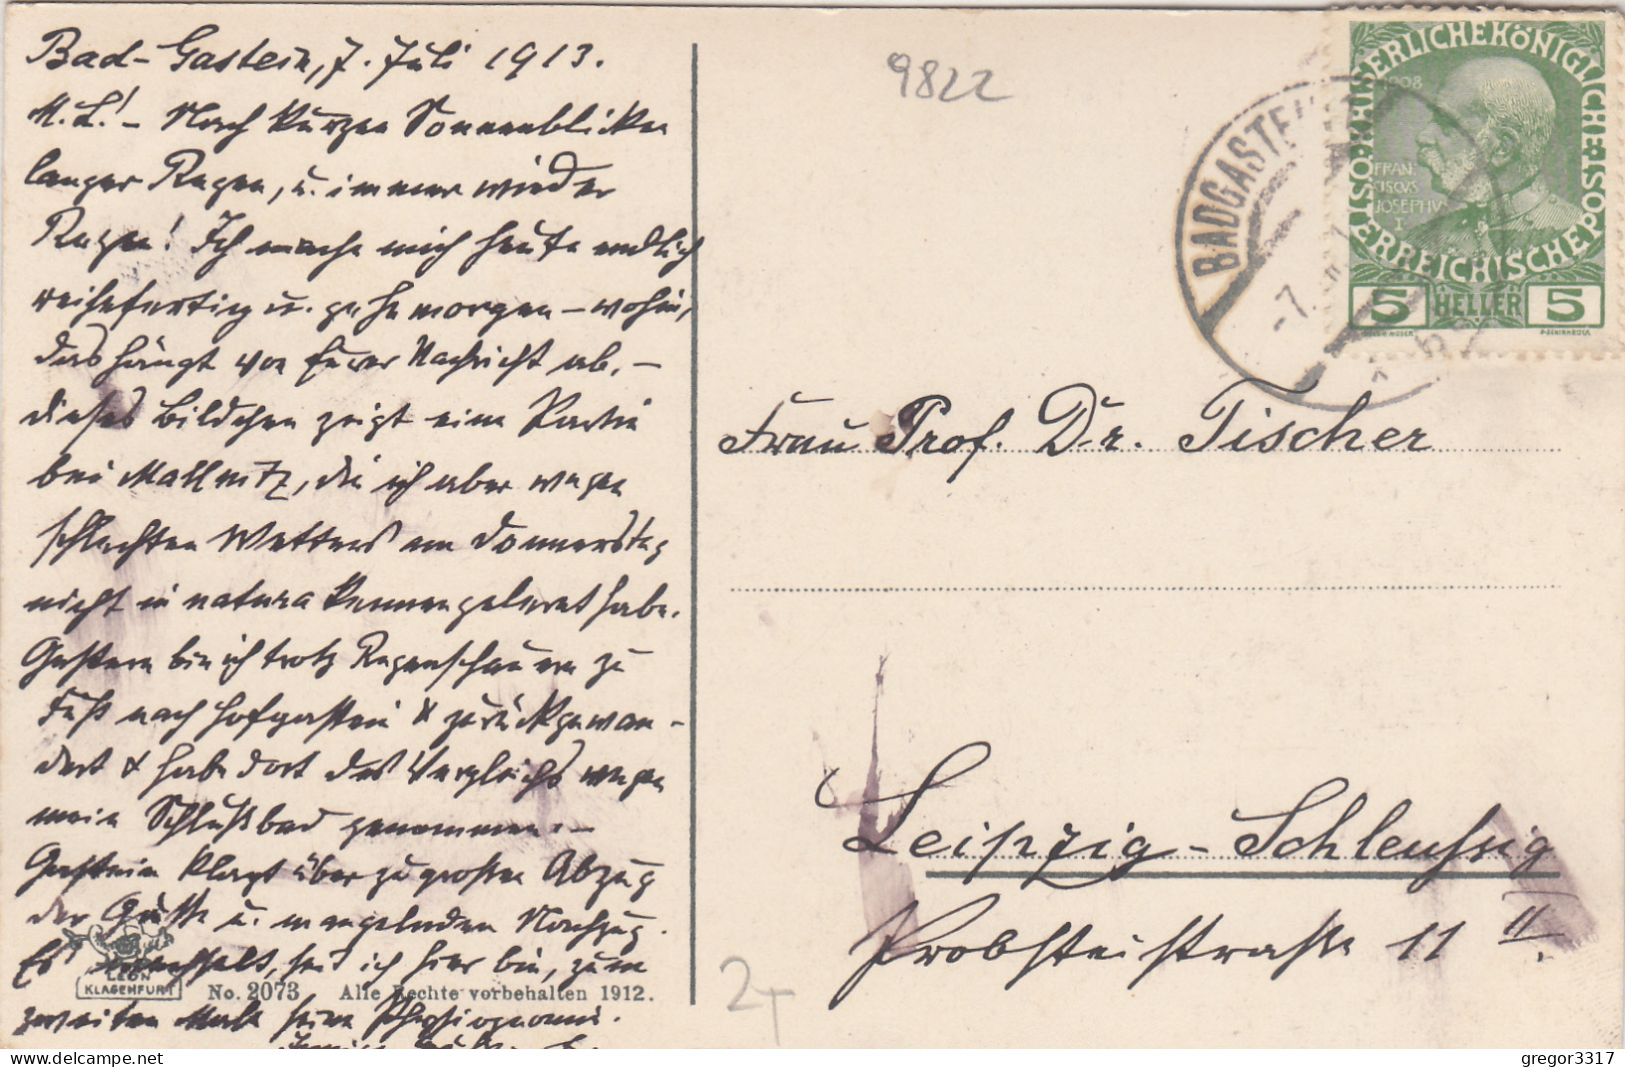 Bad-Gastein, 7. Juli 1913.
M. L.! – Nach kurzen Sonnenblicken
langer Regen, u. immer wieder
Regen! Ich mache mich heute endlich
reisefertig u. gehe morgen – wohin,
das hängt von Eurer Nachricht ab. –
dieses Bildchen zeigt eine Partie
bei Mallnitz, die ich aber wegen
schlechten Wetters am Donnerstag
nicht in natura kennengelernt habe.
Gestern bin ich trotz Regenschauern zu
Fuß nach Hofgastein & zurückgewan-
dert & habe dort des Vergleichs wegen
mein Schlußbad genommen. –
Gastein klagt über zu großen Abzug
der Gäste u. mangelnden Nachzug.
Es wechselt, seit ich hier bin, zum
zweiten Male seine Physiognomie.
LEON
KLAGENFURT
No. 2073 Alle Rechte vorbehalten 1912.
9822
BADGASTEIN
-7.
KAISERLICHE KÖNIGLICHE
ÖSTERREICHISCHE POST
1908
FRAN
CISCVS
JOSEPHV
I
5 HELLER 5
Frau Prof. Dr. Tischer
Leipzig-Schleußig
Probsteistraße 11 II.
2+
gregor3317